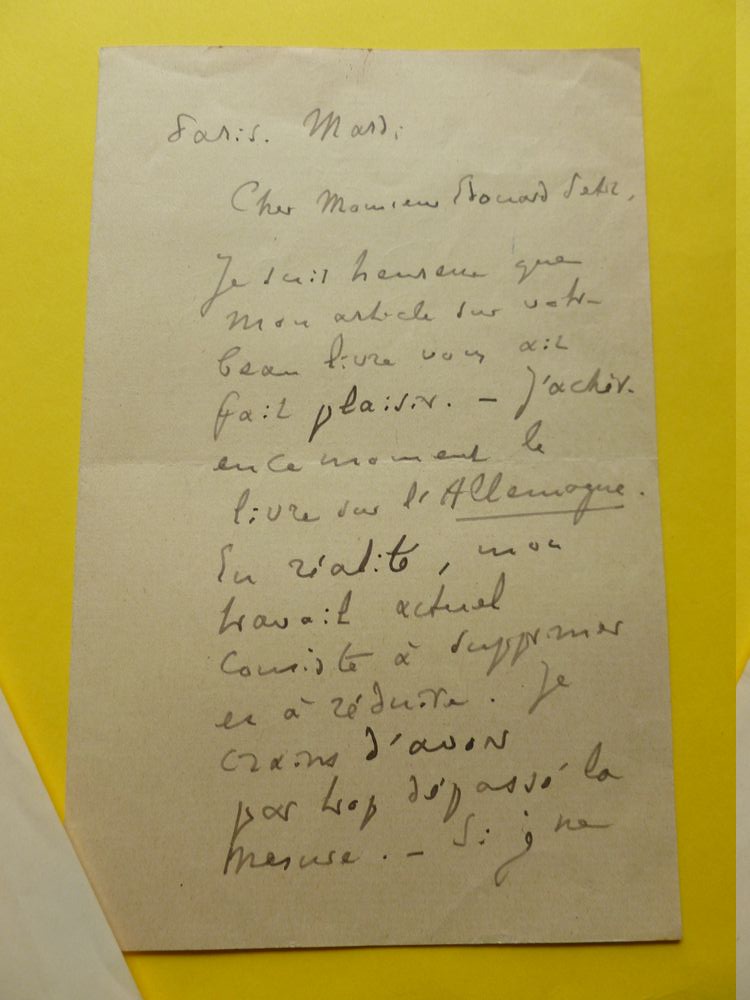 Paris. Mardi
Cher Monsieur Edouard Petit,
Je suis heureux que
mon article sur votre
beau livre vous ait
fait plaisir. — J'achève
en ce moment le
livre sur l'Allemagne.
En réalité, mon
travail actuel
consiste à supprimer
et à réduire. Je
crains d'avoir
par trop dépassé la
mesure. — Si je ne